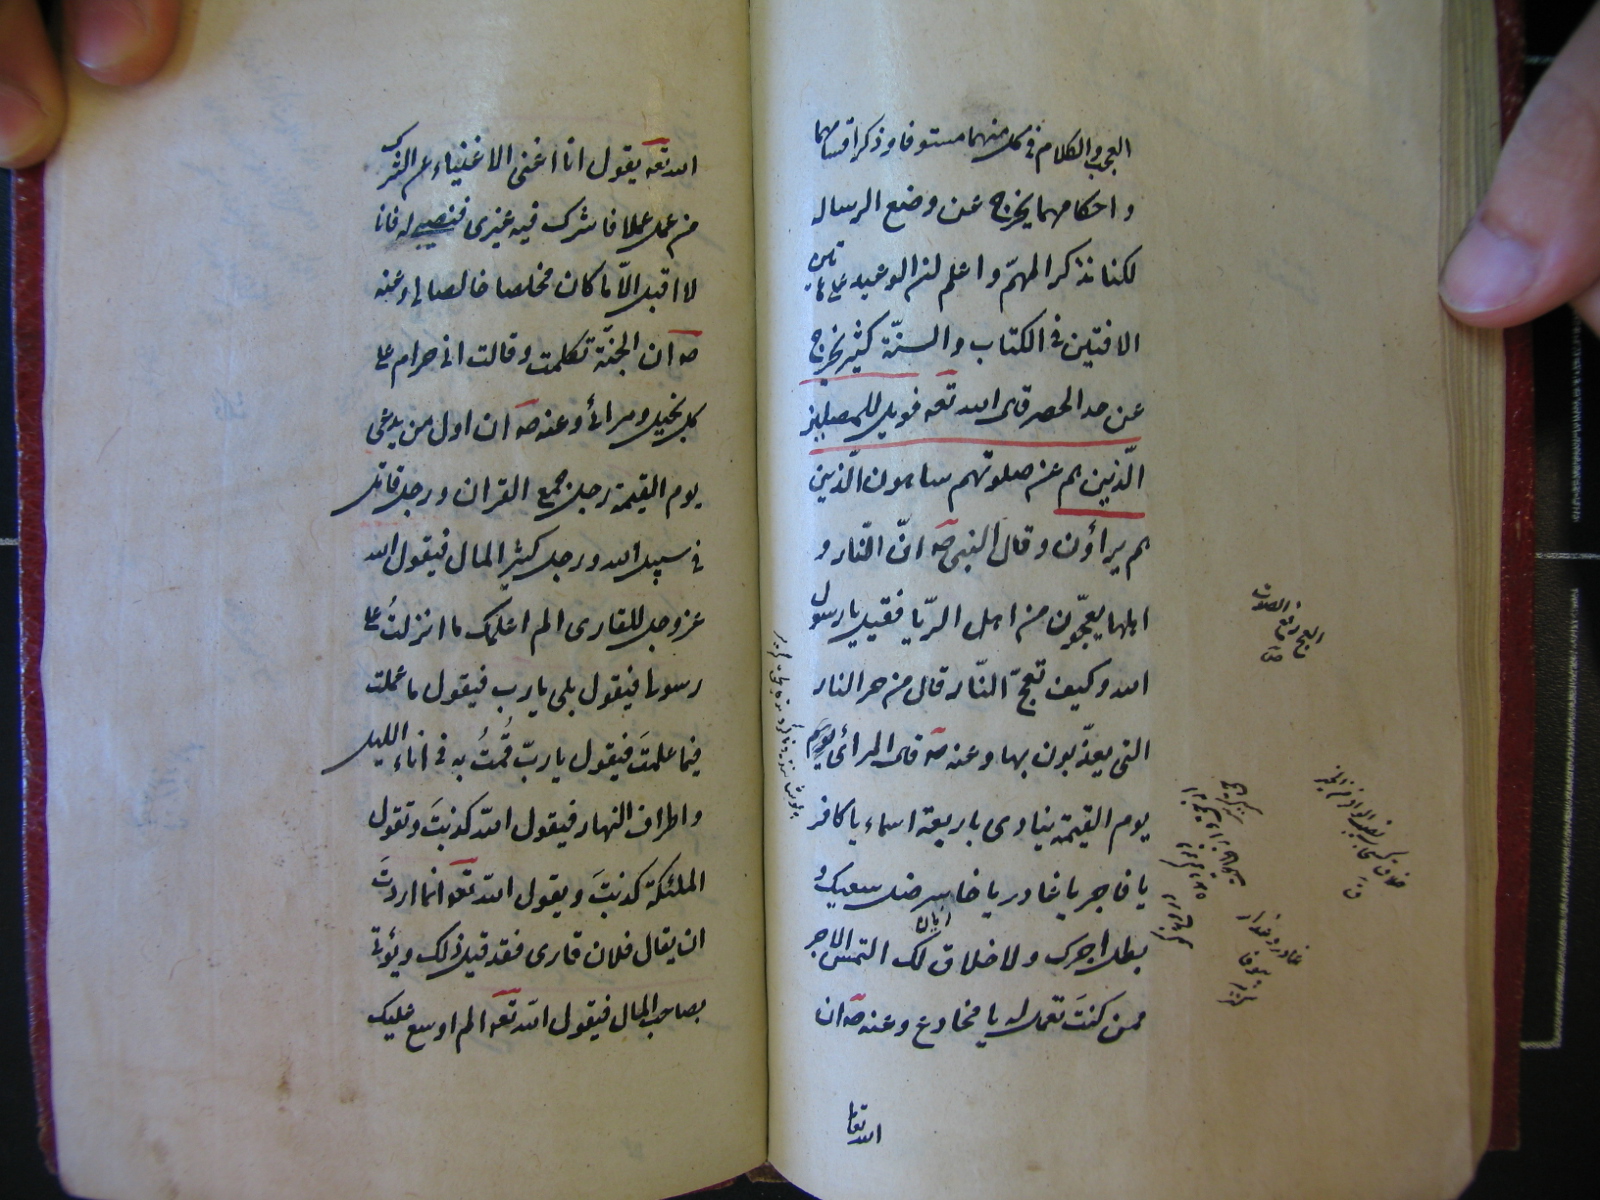 العجب والكلام في كل منهما مستوفا وذكر اقسامهما
واحكامهما يخرج عن وضع الرساله
لكنا نذكر المهمّ واعلم ان الوعيد على هاتين
الافتين في الكتاب والسنّة كثير يخرج
عن حد الحصر قال الله تعه فويل للمصلين
الّذين هم عن صلوتهم ساهون الّذين
هم يراؤن وقال النبي صه انّ النّار و
اهلها يعجّون من اهل الرّيا فقيل يا رسول
الله وكيف تعجّ النّار قال من حر النار
التي يعذّبون بها وعنه صه قال المرائي يوم
يوم القيمة ينادى باربعة اسماء يا كافر
يا فاجر يا غادر يا خاسر ضل سعيك و
بطل اجرك ولا خلاق لك التمس الاجر
ممن كنتَ تعمل له يا مخادع وعنه صه ان
الله تعا
العج رفع الصوت
صح
الله تعه يقول انا اغنى الاغنياء عن الشرك
من عمل عملا فاشرك فيه غيرى فنصيبي له فانا
لا اقبل الّا ما كان مخلصا خالصا لي وعنه
صه ان الجنّة تكلمت وقالت اني حرام على
كل بخيل ومرائي وعنه صه ان اول من يدعى
يوم القيمة رجل جمع القران ورجل قاتل
في سبيل الله ورجل كثير المال فيقول الله
عز وجل للقارى الم اعلمك ما انزلتُ على
رسولي فيقول بلى يا رب فيقول ما عملت
فيما علمتَ فيقول يا ربّ قُمتُ به في اناء الليل
واطراف النهار فيقول الله كذبتَ وتقول
الملئكة كذبتَ ويقول الله تعه انما اردتَ
ان يقال فلان قارى فقد قيل ذلك ويؤتى
بصاحب المال فيقول الله تعه الم اوسع عليك